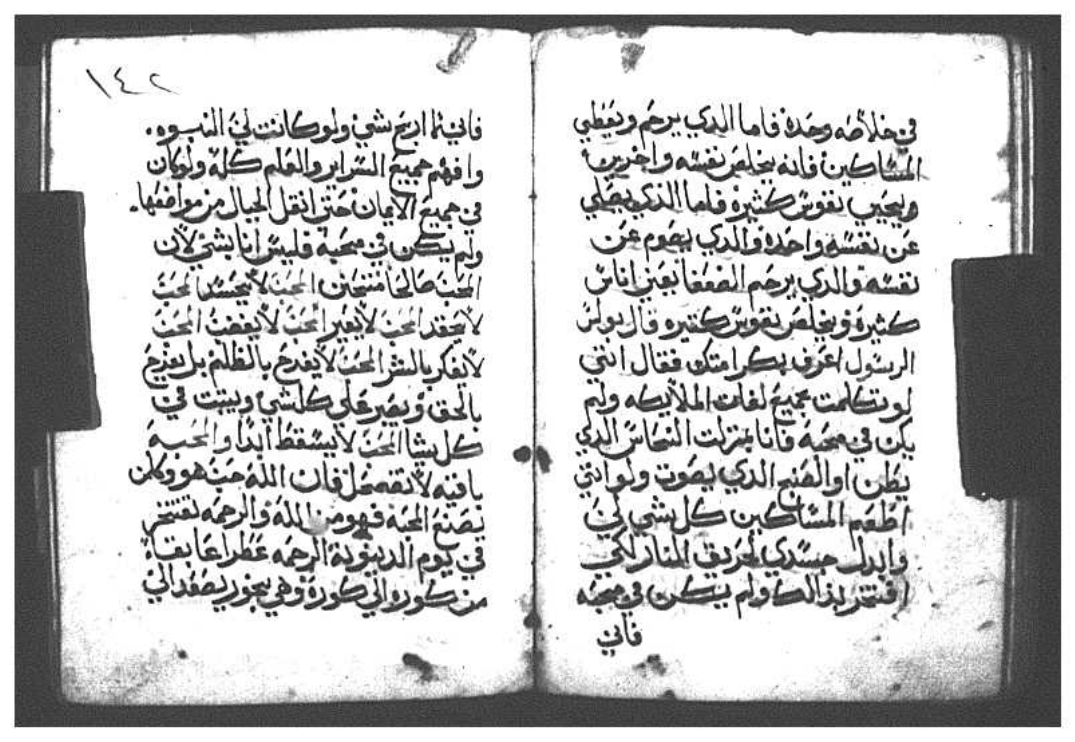 في خلاصه وحده فاما الدي يرحم ويعطي
المساكين فانه يخلص نفسه واخرين
ويحيي نفوس كثيره فاما الذي يصلي
عن نفسه واحده والدي يصوم عن
نفسه والدي يرحم الضعفا يعين اناس
كثيره ويخلص نفوس كثيره قال بولس
الرسول اعرف بكرامتك فقال انني
لو تكلمت بجميع لغات الملايكه ولم
يكن في محبه فانا بمنزلت النحاس الدي
يطن او الصنج الدي يصوت ولو انني
اطعم المساكين كل شي لي
وابدل جسدي لحريق النار لكي
افتخر بذالك ولم يكن في محبه
فاني
١٤٢
فاني ما اربح شي ولو كانت لي النبوه.
وافهم جميع السراير والعلم كله ولو كان
في جميع الايمان حتى انقل الجبال من مواضعها.
ولم يكن في محبه فليس انا بشي لان
المحب لا يحسد المحب
لا يحقد المحب لا يغير المحب لا يغضب المحب
لا يفكر بالشر المحب لا يفرح بالظلم بل يفرح
بالحق ويصبر على كلشي ويثبت في
كل شيا المحب لا يسقط ابدا والمحبه
باقيه لا تضمحل فان الله حب هو وكلمن
يصنع المحبه فهو من الله والرحمه تفتخر
في يوم الدينونة الرحمه
من كوره الي كوره وهي بخور يصعد الي